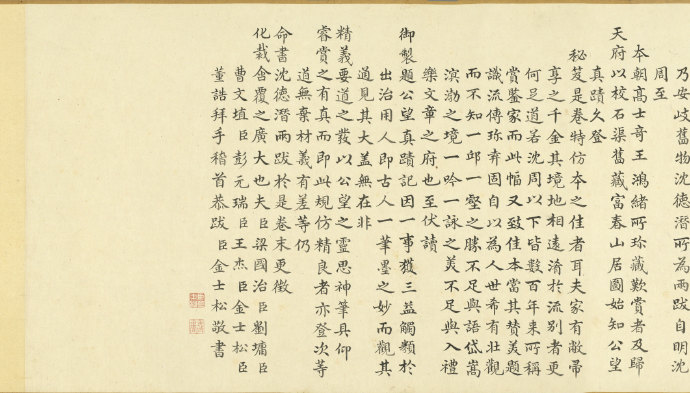 乃安歧舊物沈德潛所為兩跋自明沈
周至
本朝高士奇王鴻緒所珍藏歎賞者及歸
天府以校石渠舊藏富春山居圖始知公望
真蹟久登
秘笈是卷特仿本之佳者耳夫家有敝帚
享之千金其境地相遠淆於流別者更
何足道若沈周以下皆數百年來所稱
賞鑒家而此幅又致佳本當其贊美題
識流傳珍弆固自以為人世希有壯觀
而不知一邱一壑之勝不足與語岱嵩
溟渤之境一吟一詠之美不足與入禮
樂文章之府也至伏讀
御製題公望真蹟記因一事獲三益觸類於
出治用人即古人一筆墨之妙而觀其
道見其大蓋無在非
精義要道之發以公望之靈思神筆具仰
睿賞之有真而即此規仿精良者亦登次等
道無棄材義有差等仍
命書沈德潛兩跋於是卷末更徵
化裁含覆之廣大也夫臣梁國治臣劉墉臣
曹文埴臣彭元瑞臣王杰臣金士松臣
董誥拜手稽首恭跋臣金士松敬書